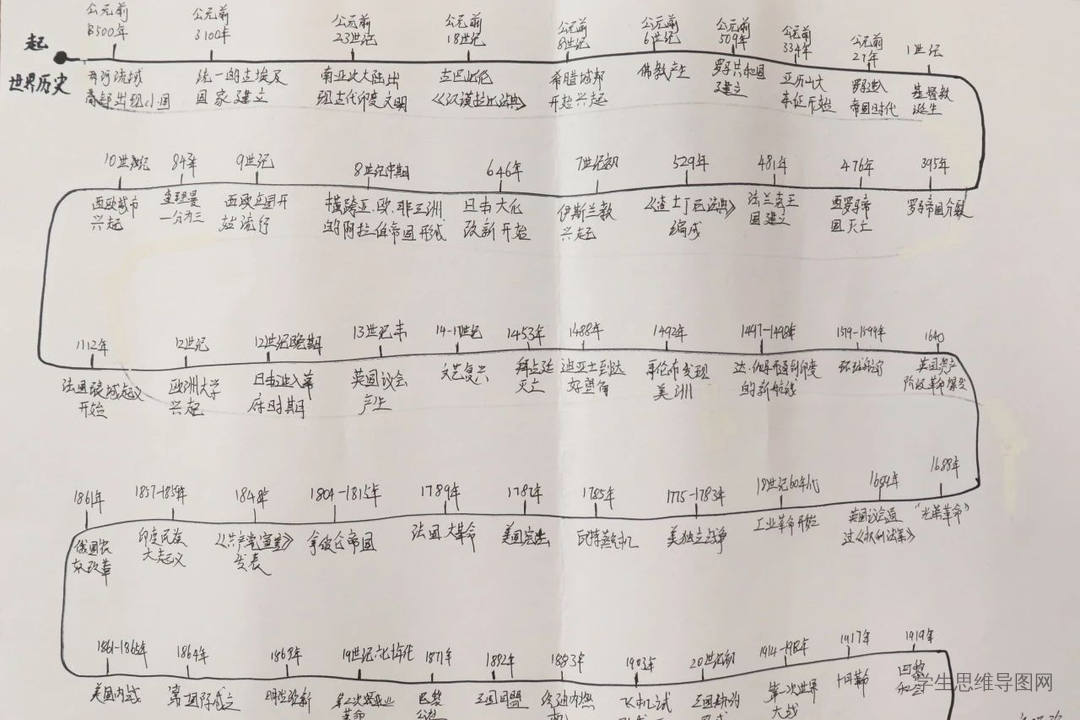 起
世界历史
公元前
3500年
两河流域
奴隶制小国
公元前
3100年
统一的古埃及
国家建立
公元前
23世纪
南亚次大陆出
现古代印度文明
公元前
18世纪
古巴比伦
《汉谟拉比法典》
公元前
8世纪
希腊城邦
开始兴起
公元前
6世纪
佛教产生
公元前
509年
罗马共和国
建立
公元前
334年
亚历山大
东征开始
公元前
27年
罗马进入
帝国时代
1世纪
基督教
诞生
395年
罗马帝国分裂
476年
西罗马帝
国灭亡
481年
法兰克王
国建立
529年
《查士丁尼法典》
编成
7世纪初
伊斯兰教
兴起
646年
日本大化
改新开始
8世纪中期
横跨亚、欧、非三洲
的阿拉伯帝国形成
9世纪
西欧庄园开
始流行
843年
查理曼
一分为三
10世纪
西欧城市
兴起
1112年
法国琅城起义
开始
12世纪
欧洲大学
兴起
12世纪晚期
日本进入幕
府时期
13世纪末
英国议会
产生
14-17世纪
文艺复兴
1453年
拜占廷
灭亡
1488年
迪亚士到达
好望角
1492年
哥伦布发现
美洲
1497-1498年
达·伽马开通到印度
的新航线
1519-1522年
环球航行
1640
英国资产
阶级革命爆发
1688年
"光荣革命"
1689年
英国议会通
过《权利法案》
18世纪60年代
工业革命开始
1775-1783年
美独立战争
1785年
瓦特蒸汽机
1787年
美国宪法
1789年
法国大革命
1804-1815年
拿破仑帝国
1848年
《共产党宣言》
发表
1857-1859年
印度民族
大起义
1861年
俄国农
奴改革
1861-1865年
美国内战
1864年
第一国际成立
1868年
明治维新
19世纪六七十年代
第二次工业
革命
1871年
巴黎
公社
1882年
三国同盟
1883年
1903年
飞机试
20世纪初
三国协约
1914-1918年
第一次世界
大战
1917年
十月革命
1919年
巴黎
和会
学生思维导图网